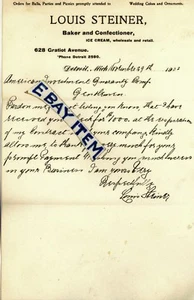 Orders for Balls, Parties and Picnics promptly attended to
Wedding Cakes and Ornaments.
LOUIS STEINER,
Baker and Confectioner,
ICE CREAM, wholesale and retail.
628 Gratiot Avenue.
'Phone Detroit 2580.
Detroit, Mich.
American Investment Guaranty
Gentlemen
Pardon me for not letting you know that I have
received your check for at the expiration
of my Contract your Company Kindly
allow me to thank very much for your
prompt Payment you much success
in your Business I am yours Very
Respectfully
Louis Steiner
EBAY ITEM